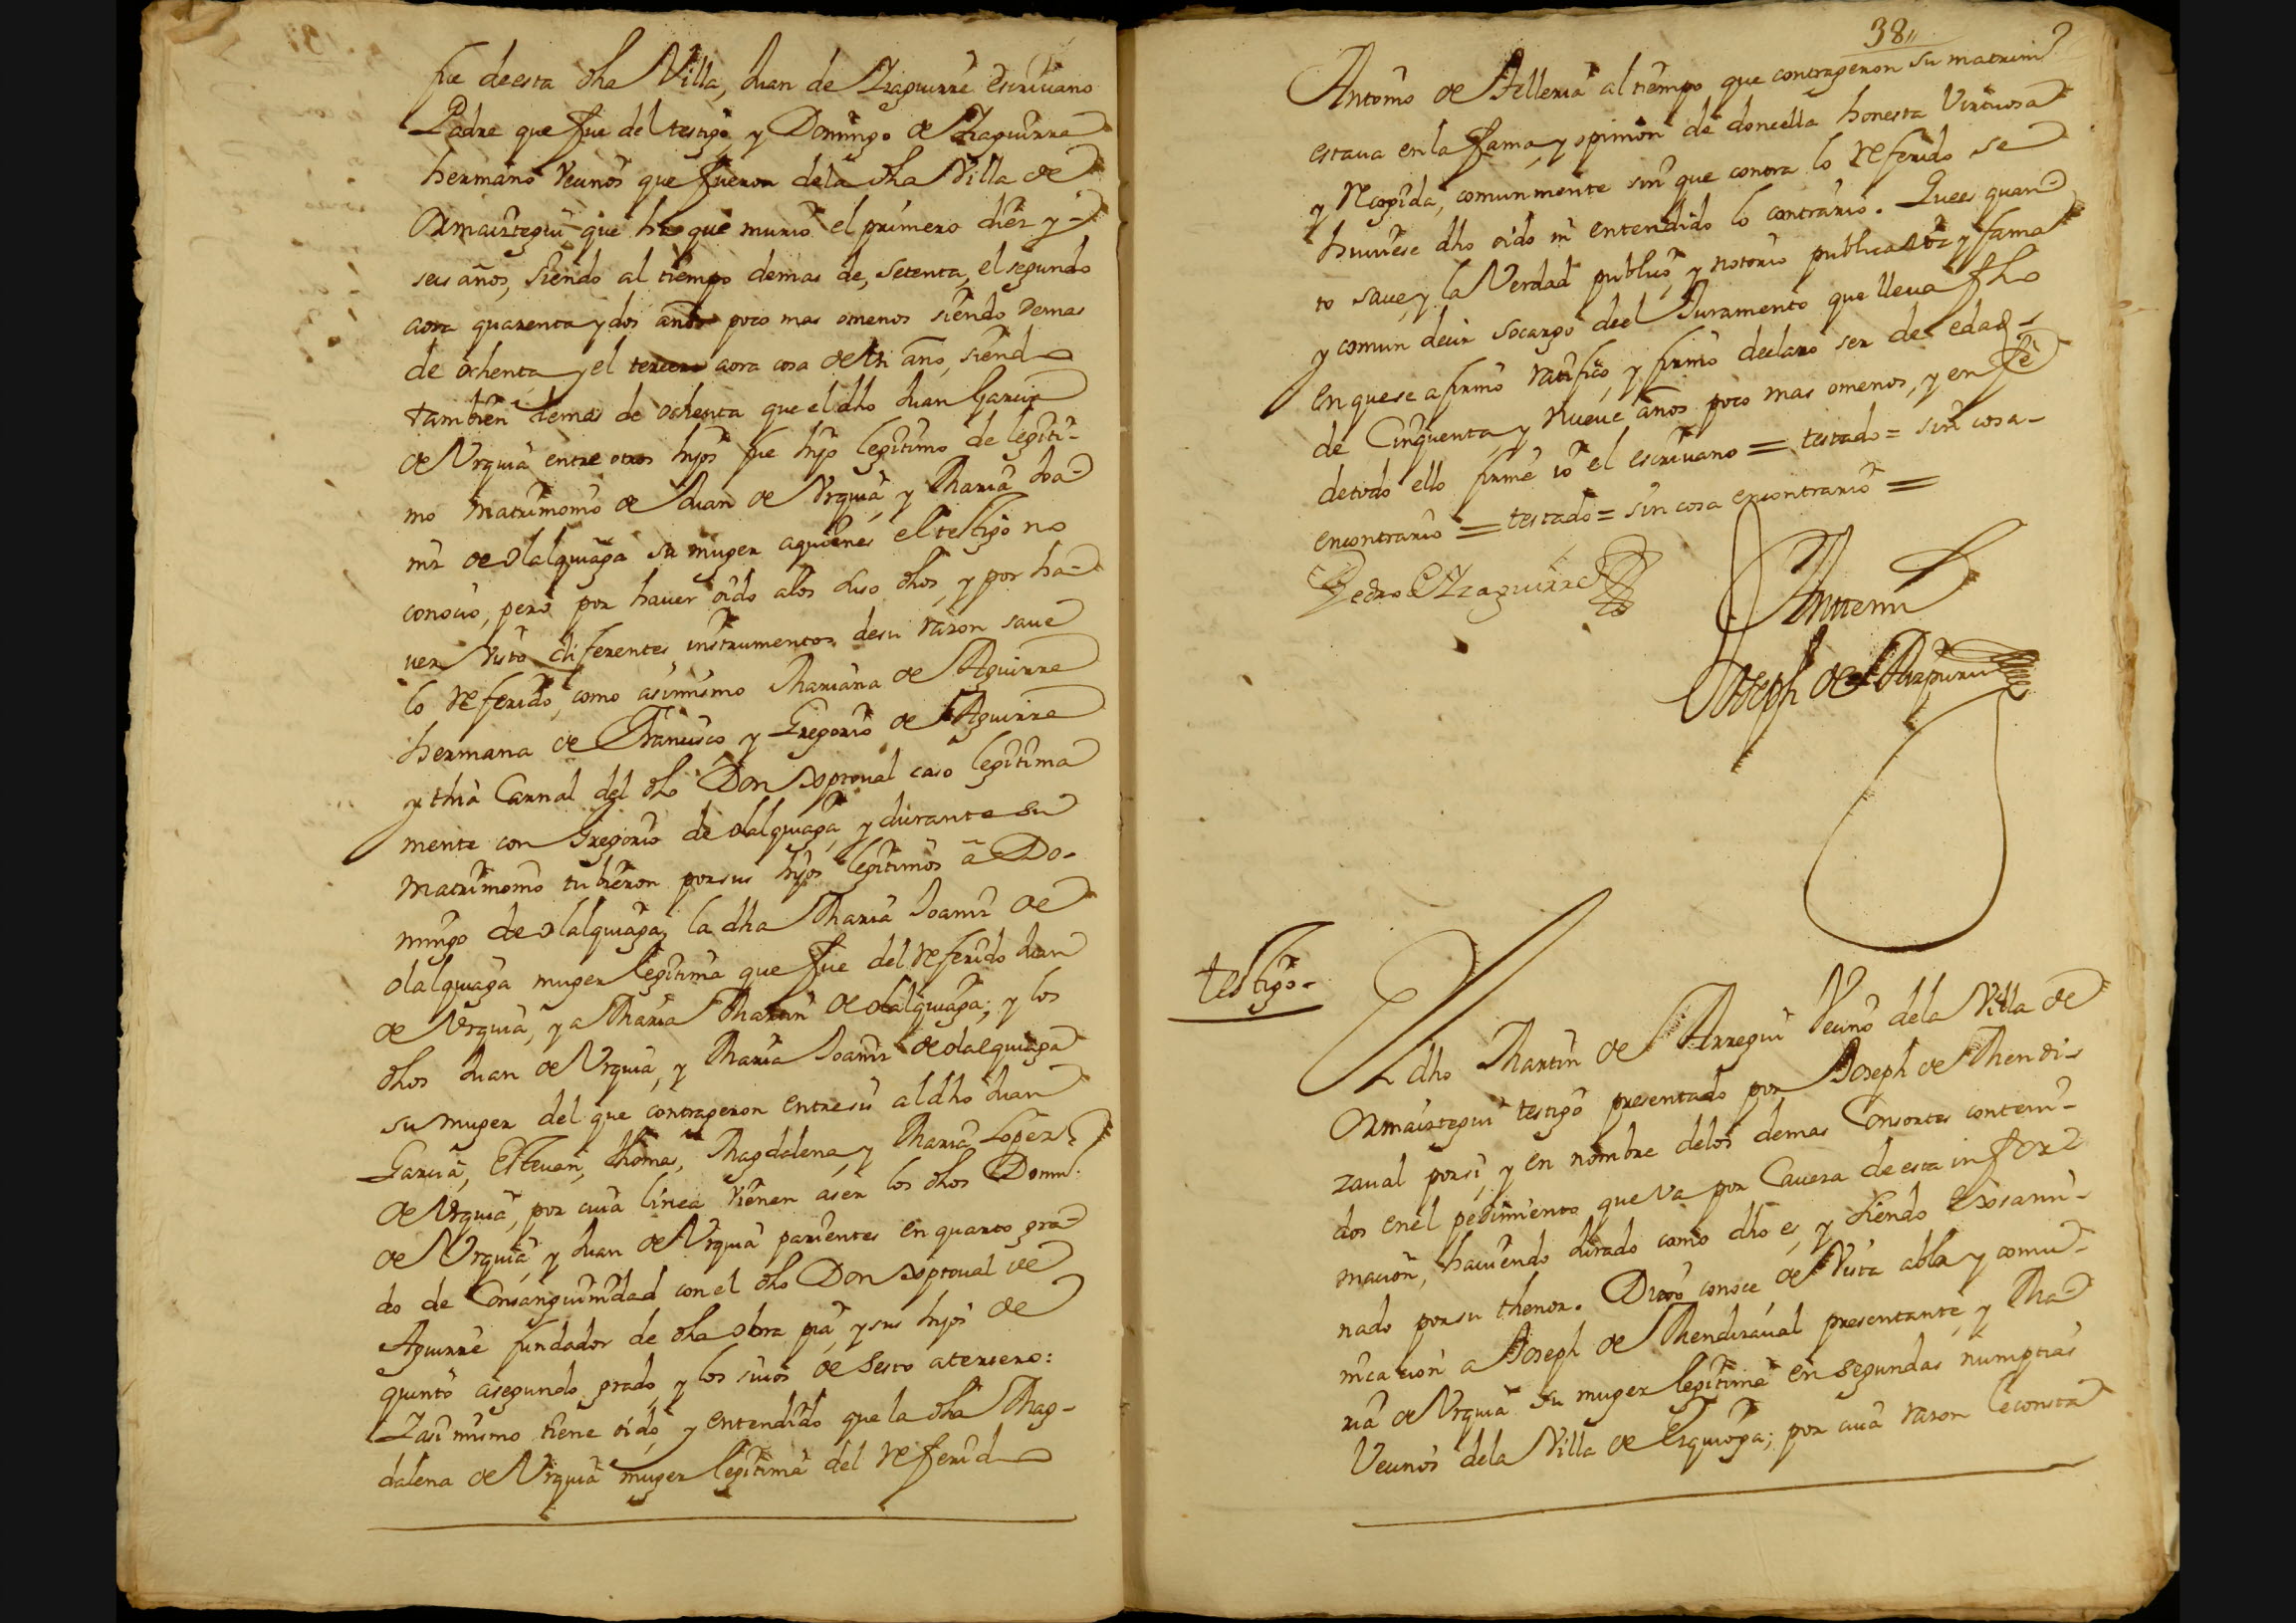 fue deesta dha Villa, Juan de Yzaguirre escriuano
Padre que fue del testigo, y Domingo de Yzaguirre
hermano Vecinos que fueron dela dha Villa de
Ormaiztegui que ha que murio el primero diez y
seis años, siendo al tiempo demas de, setenta, el segundo
aora quarenta y dos años poco mas omenos siendo demas
de ochenta, y el tercero aora cosa de Un año, siendo
tambien demas de ochenta que el dho Juan Garcia
de Vrquia entre otros hijos fue hijo legitimo de legiti-
mo matrimonio de Juan de Vrquia, y Maria Joa-
niz de olalquiaga su muger aquienes el testigo no
conocio, pero por hauer oido alos suso dhos, y por ha-
uer Visto diferentes instrumentos desu razon saue
lo referido, como asimismo Mariana de Aguirre
hermana de Francisco, y Gregorio de Aguirre
y thia Carnal del dho Don Xptoual caso legitima
mente con Gregorio de olalquiaga, y durante su
matrimonio tubieron porsus hijos legitimos a Do-
mingo de olalquiaga, la dha Maria Joaniz de
olalquiaga muger legitima que fue del referido Juan
de Vrquia, y a Maria Martin de olalquiaga; y los
dhos Juan de Vrquia, y Maria Joaniz de olalquiaga
su muger del que contrageron entresi al dho Juan
Garcia, Esteuan, thomas, Magdalena, y Maria Lopez
de Vrquia, por cuia linea vienen aser los dhos Domin.
de Vrquia, y Juan de Vrquia parientes en quarto gra-
do de Consanguinidad con el dho Don Xptoual de
Aguirre fundador de dha obra pia, y sus hijos de
quinto asegundo grado, y los suios de Sesto atersero:
Yasimismo tiene oido, y entendido que la dha Mag-
dalena de Vrquia muger legitima del referido
38
Antonio de Telleria al tiempo que contrageron su matrim.º
estaua en la fama, y opinion de doncella honesta Virtuosa
y Recogida, comunmente sin que contra lo referido se
huuiese dho oido ni entendido lo contrario. Quees quan-
to saue, y la Verdad publico, y notorio publica voz y fama
y comun decir socargo del Juramento que lleua fho
en quese afirmo ratifico, y firmo declaro ser de edad
de Cinquenta, y nueue años poco mas omenos, y en fe
detodo ello firme io el escriuano = testado = sin cosa-
encontrario = testado = sin cosa encontrario =
Pedro de Yzaguirre
Antemi
Joseph de Aizpuru
testigo-
El dho Martin de Arregui Vecino dela Villa de
Ormaiztegui testigo presentado por Joseph de Mendi-
zaual porsi, y en nombre delos demas Consortes conteni-
dos en el pedimiento que va por Cauesa de esta infor-
macion, hauiendo Jurado como dho es, y siendo exsami-
nado porsu thenor. Dixo conoce de Vista abla y comu-
nicacion a Joseph de Mendizaual presentante, y Ma-
ria de Vrquia su muger legitima en segundas numptias
Vecinos dela Villa de Ezquioga; por cuia razon le consta